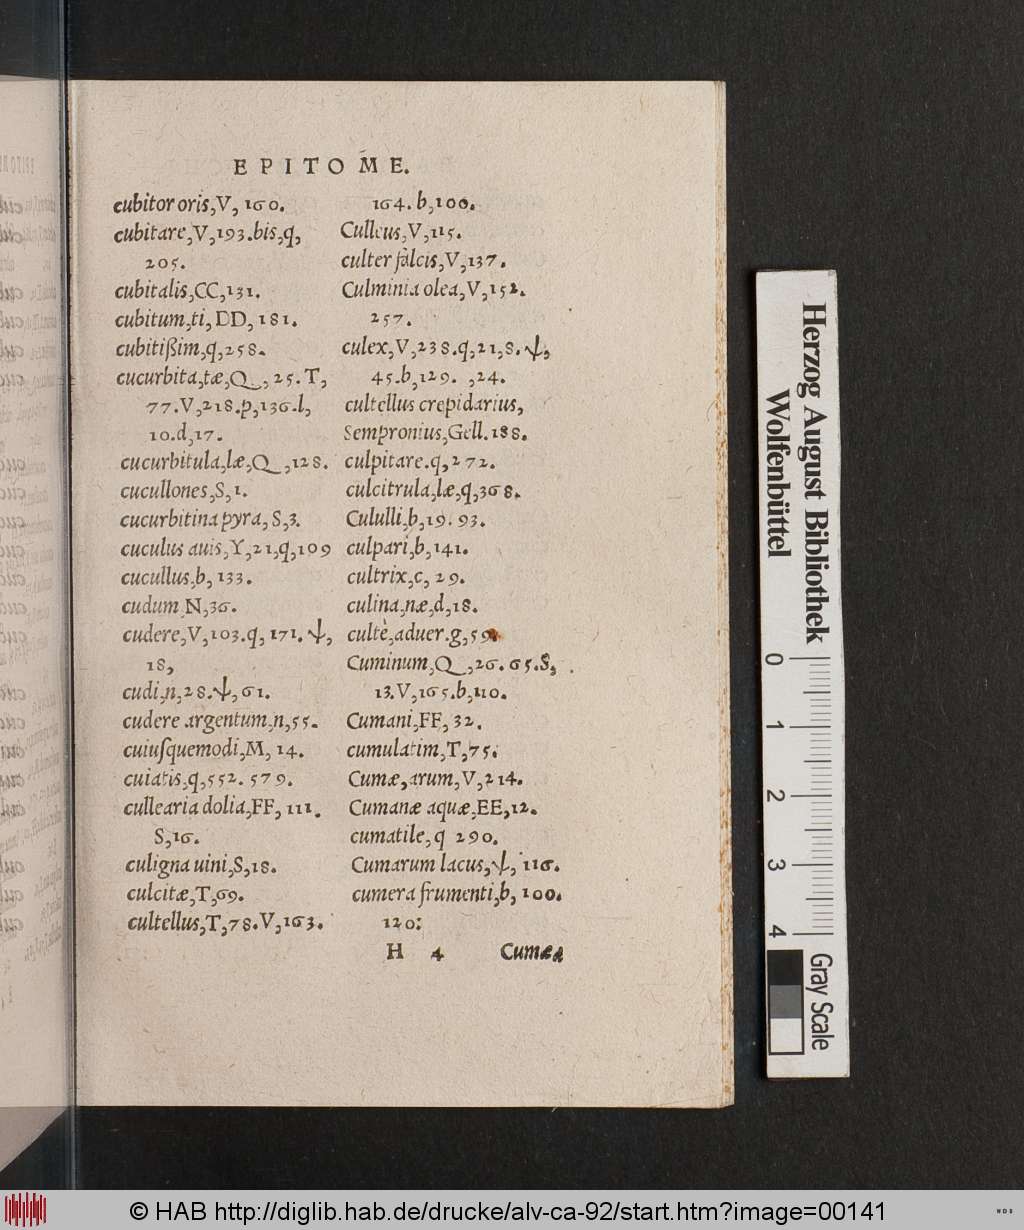 EPITOME.
cubitor oris,V, 160.
cubitare,V,193.bis,q,
205.
cubitalis,CC,131.
cubitum,ti, DD, 181.
cubitißim,q,258.
cucurbita,tæ,Q, 25. T,
77.V,218.p,136.l,
10.d,17.
cucurbitula,læ,Q,128.
cucullones,S,1.
cucurbitina pyra, S,3.
cuculus auis,Y,21,q,109
cucullus,b, 133.
cudum N,36.
cudere,V,103.q, 171. ψ,
18,
cudi,n,28.ψ,61.
cudere argentum,n,55.
cuiuſquemodi,M, 14.
cuiatis,q,552. 579.
cullearia dolia,FF, 111.
S,16.
culigna uini,S,18.
culcitæ,T,69.
cultellus,T,78.V,163.
164. b,100.
Culleus,V,115.
culter falcis,V,137.
Culminia olea,V,152.
257.
culex,V,238.q,21,8. ψ,
45.b,129. ,24.
cultellus crepidarius,
Sempronius,Gell.188.
culpitare.q,272.
culcitrula,læ,q,368.
Cululli,b,19. 93.
culpari,b,141.
cultrix,c, 29.
culina,næ,d,18.
cultè,aduer.g,59.
Cuminum,Q,26. 65.S,
13.V,165.b,110.
Cumani,FF, 32.
cumulatim,T,75.
Cumæ,arum,V,214.
Cumanæ aquæ,EE,12.
cumatile,q 290.
Cumarum lacus,ψ, 116.
cumera frumenti,b, 100.
120:
H 4 Cumæa
Herzog August Bibliothek
Wolfenbüttel
0 1 2 3 4
Gray Scale
© HAB http://diglib.hab.de/drucke/alv-ca-92/start.htm?image=00141
WDB